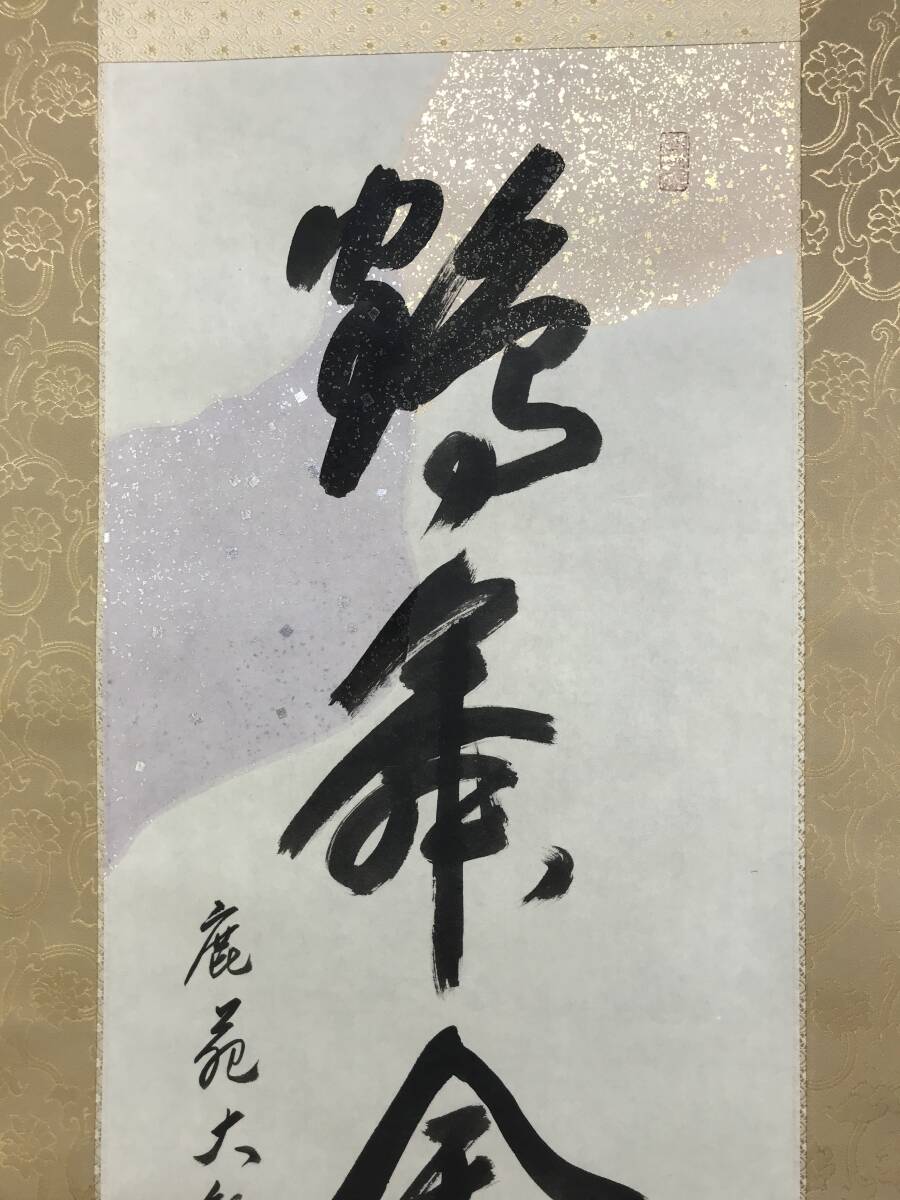 鶴舞金
鹿苑大